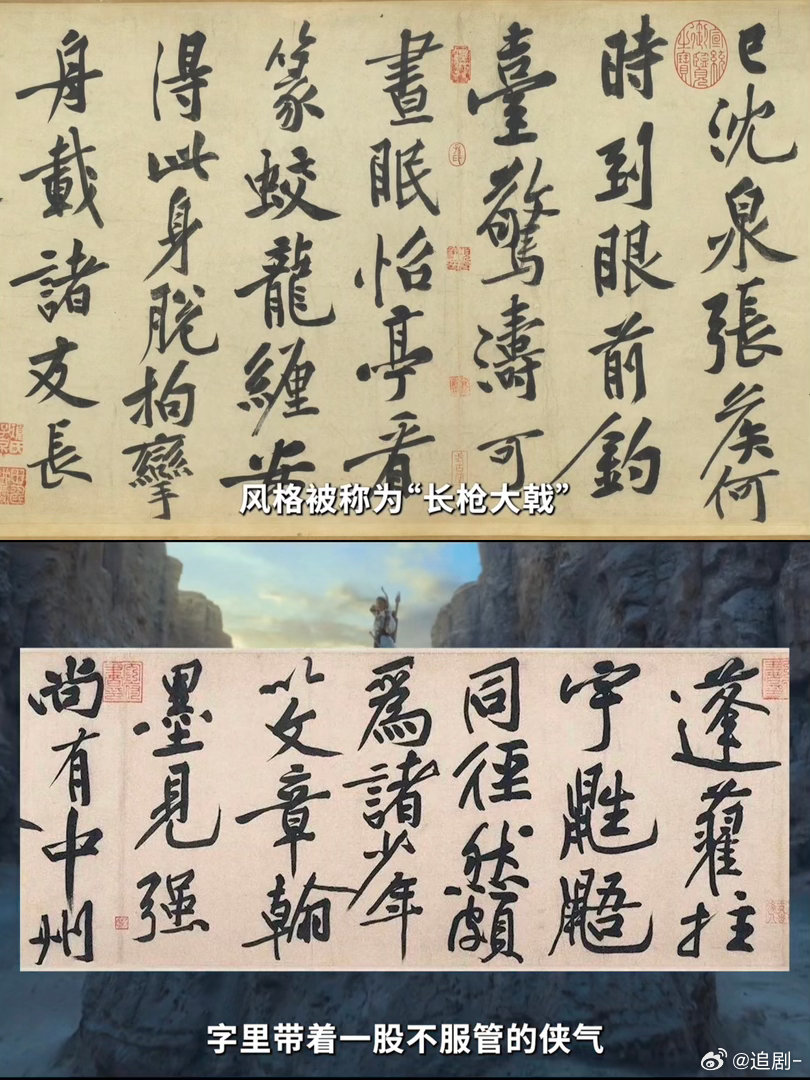 已沈泉張侯何
時到眼前釣
臺驚濤可
晝眠怡亭看
篆蛟龍纏安
得此身脫拘攣
舟載諸友長
宣統御覽之寶
风格被称为“长枪大戟”
蓬藋拄
宇鼪鼯
同徑然頗
爲諸少年
以文章翰
墨見强
尚有中州
字里带着一股不服管的侠气
@追剧-